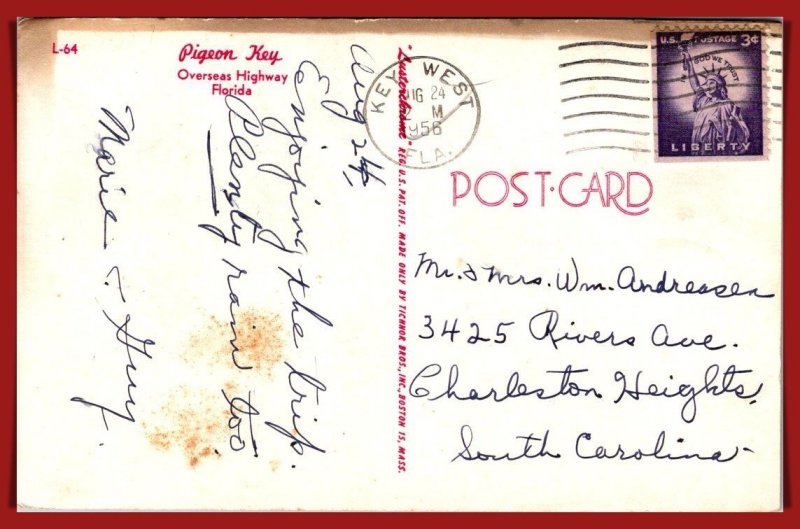 L-64
Pigeon Key
Overseas Highway
Florida
Aug 24,
Enjoying the trip.
Plenty rain too
Marie & Guy.
"Lusterchrome" REG. U.S. PAT. OFF. MADE ONLY BY TICHNOR BROS., INC., BOSTON 15, MASS.
KEY WEST
AUG 24
M
1956
FLA.
U.S. POSTAGE 3¢
IN GOD WE TRUST
LIBERTY
POST-CARD
Mr. & Mrs. Wm. Andreasen
3425 Rivers Ave.
Charleston Heights,
South Carolina-